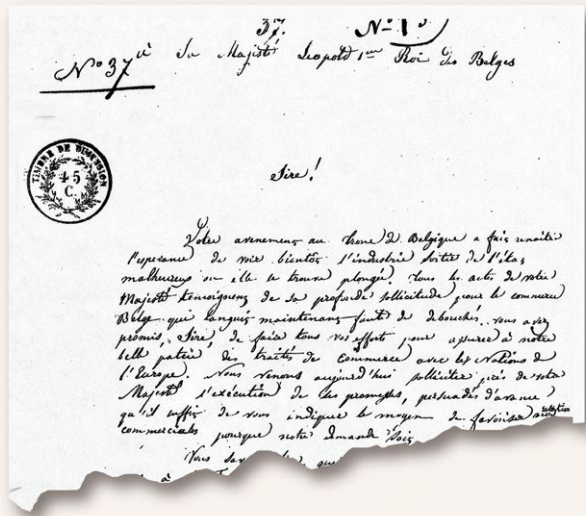 37.
N° 1
N° 37 a
Sa Majesté Leopold 1er Roi des Belges
TIMBRE DE DIMENSION
45
C.
Sire!
Votre avenement au trone de Belgique a fais renaitre
l'esperance de voir bientos l'industrie sortir de l'etas
malheureux ou elle se trouve plongée. Tous les actes de votre
Majesté temoignens de sa profonde sollicitude pour le commerce
Belge qui languis maintenans faute de débouchés. Vous avez
promis, Sire, de faire tous vos efforts pour assurer à notre
belle patrie, des traités de commerce avec les Nations de
l'Europe. Nous venons aujourd'hui solliciter près de votre
Majesté l'exécution de ces promesses, persuadés d'avance
qu'il suffis de vous indiquer le moyen de favoriser nos relations
commerciales pourque notre demande sois
Vous